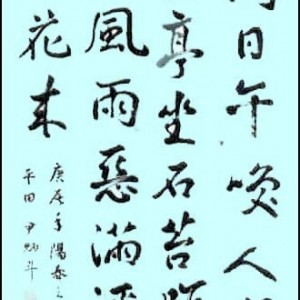 日午喚人
亭坐石苔
風雨惡滿
花来
庚辰年陽春之
平田 尹炳斗